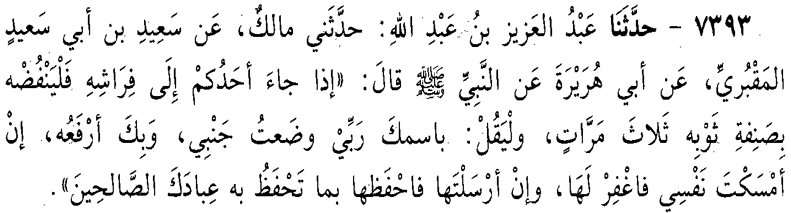 ٧٣٩٣ - حدَّثَنَا عَبْدُ العَزيزِ بنُ عَبْدِ اللهِ: حدَّثَني مالكٌ، عَن سَعِيدِ بن أبي سَعيدٍ
المَقْبُريِّ، عَن أبي هُرَيْرَةَ عَن النَّبِيِّ ﷺ قالَ: «إذا جاءَ أحَدُكمْ إِلَى فِرَاشِهِ فَلْيَنْفُضْه
بِصَنِفةِ ثَوْبِه ثَلاثَ مَرَّاتٍ، ولْيَقُلْ: باسمكَ رَبِّيْ وضَعتُ جَنْبِي، وَبِكَ أرْفَعُه، إنْ
أمْسَكْتَ نَفْسِي فاغْفِرْ لَهَا، وإنْ أرْسَلْتَها فاحْفَظها بما تَحْفَظُ به عِبادَكَ الصَّالحِينَ».